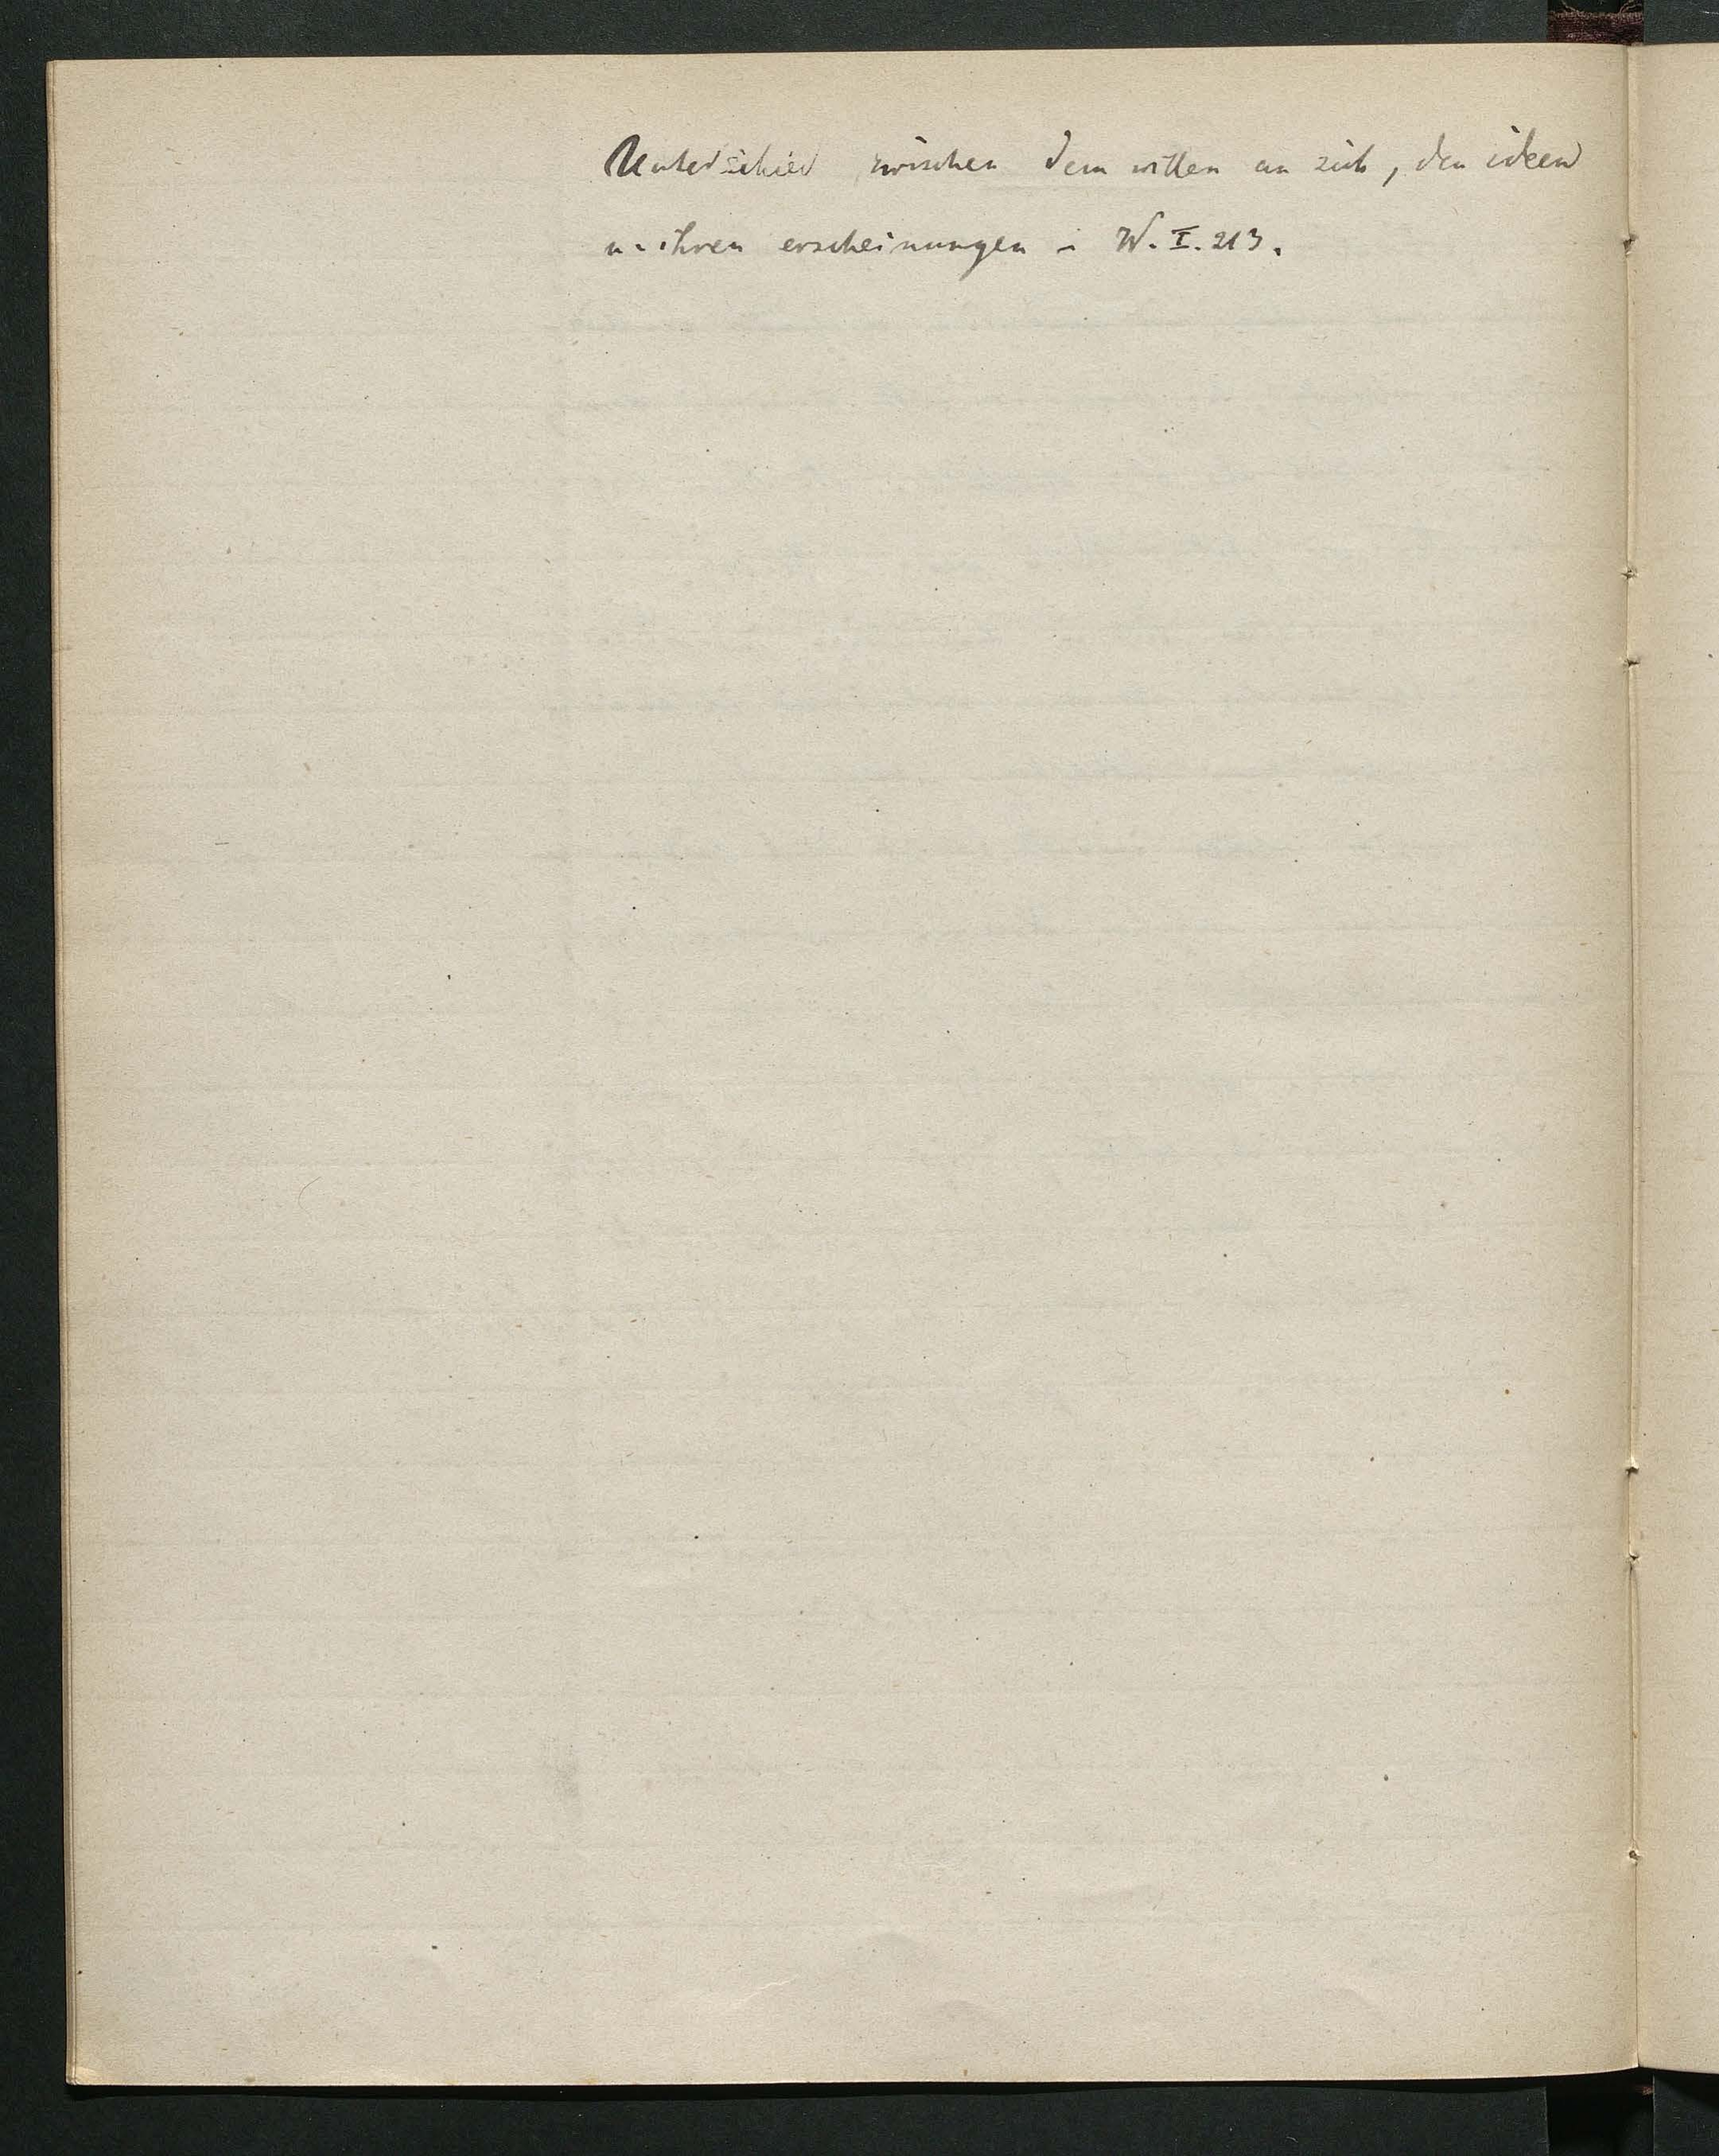 Unterschied zwischen dem willen an sich, den ideen
u. ihren erscheinungen - W. I. 213.